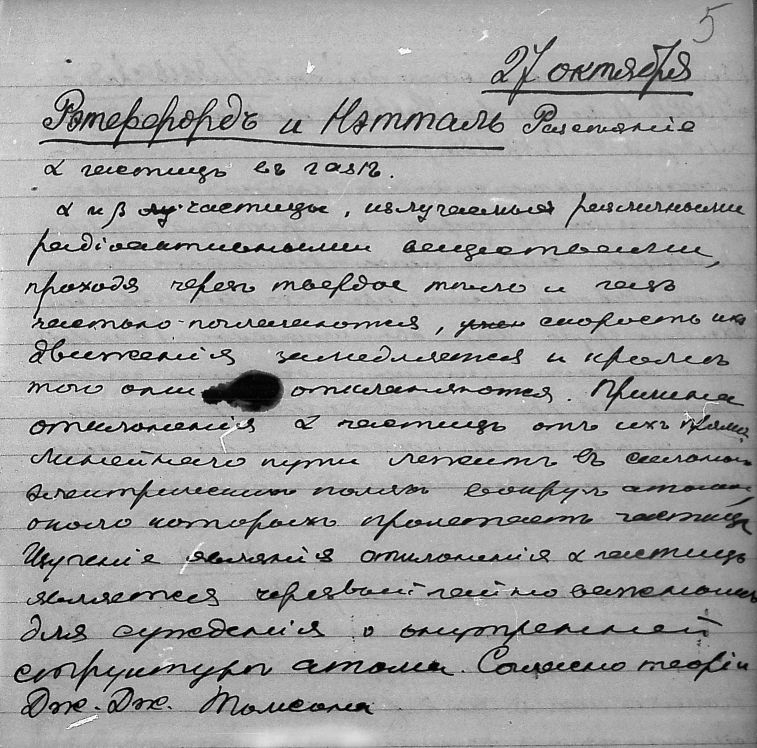 5
27 октября
Рэтерфордъ и Нэтталь Разсѣяніе
α частицъ въ газѣ.
α и β частицы, излучаемыя различными
радіоактивными веществами,
проходя черезъ твердое тѣло и газъ
частью поглащаются, скорость ихъ
движенія замедляется и кромѣ
того они отклоняются. Причина
отклоненія α частицъ отъ ихъ прямо
линейнаго пути лежитъ въ сильномъ
электрическомъ поляхъ вокругъ атома,
около которыхъ пролетаетъ частица
Изученіе явленія отклоненія α частицъ
является черезвычайно важнымъ
для сужденія о внутренней
структуры атома. Согласно теоріи
Дж. Дж. Томсона